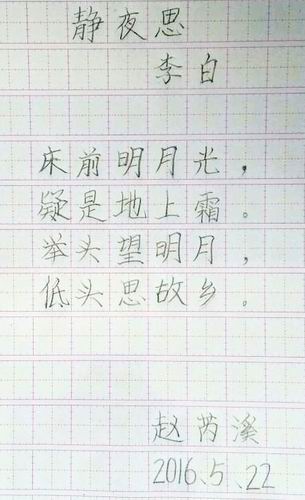 静夜思
李白
床前明月光，
疑是地上霜。
举头望明月，
低头思故乡。
赵芮溪
2016.5.22